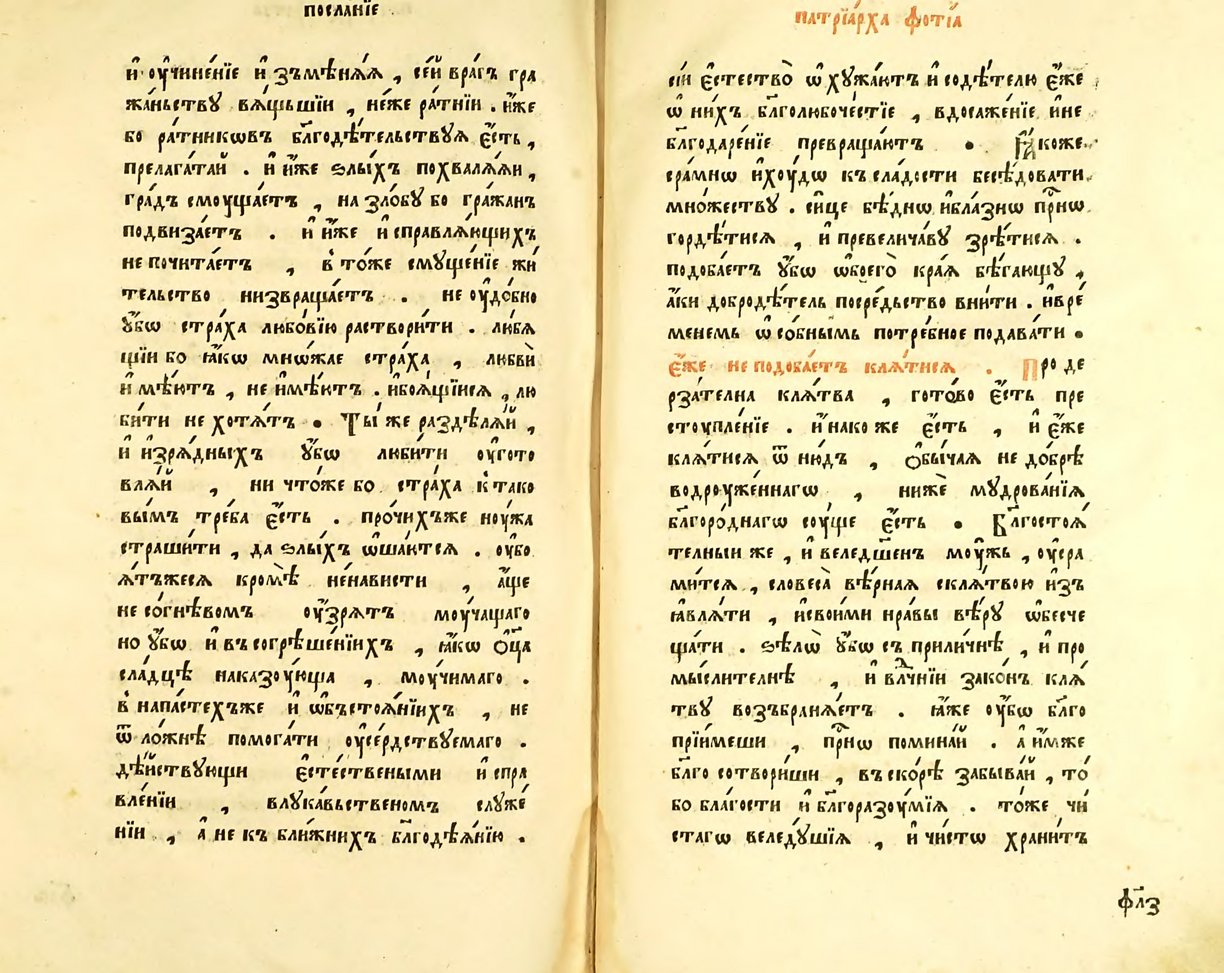 посланїе
и҆ ᲂу҆чине́нїе и҆ зъмѣнѧ́ѧ , се́й вра́гъ гра
жа́ньствꙋ вѧ́щьшїи , не́же ра́тнїи . и҆́же
бо ра́тникѡвъ бл҃годѣ́тельствꙋѧ є҆́сть ,
прелага́тай . и҆ и҆́же ѕлы́хъ похвалѧ́ѧи ,
гра́дъ смоуща́етъ , на зло́бꙋ бо гра́жанъ
подвиза́етъ . и҆ и҆́же и҆справлѧ́ющихъ
не почита́етъ , в то́же смꙋще́нїе жи́
тельство низвраща́етъ . не ᲂу҆до́бно
ᲂу҆́бѡ стра́ха любо́вїю раствори́ти . лю́бѧ
щїи бо ꙗ҆́кѡ мнѡ́жае стра́ха , любвѝ
и҆мѣ́ютъ , не и҆мѣ́ютъ . и҆боѧ́щїисѧ , лю
би́ти не хотѧ́тъ . Ты́ же раздѣлѧ́ѧй ,
и҆ и҆зрѧ́дныхъ ᲂу҆́бѡ люби́ти ᲂу҆гото
влѧ́й , ни что́же бо стра́ха к тако
вы́мъ тре́ба є҆́сть . про́чихъже ноу́жа
страши́ти , да ѕлы́хъ ѡ҆ша́ютсѧ . ᲂу҆бо
ѧ́тъжесѧ кромѣ̀ не́нависти , а҆́ще
не со́гнѣвомъ ᲂу҆́зрѧтъ моу́чащаго
но ᲂу҆́бѡ и҆ въ согрѣше́нїихъ , ꙗ҆́кѡ ѻ҆ц҃а
сла́дцѣ наказоу́юща , моу́чимаго .
в напа́стехъже и҆ ѡ҆бъстоѧ́нїихъ , не
ѿло́жнѣ помога́ти ᲂу҆се́рдствꙋемаго .
дѣ́йствꙋющи є҆сте́ствеными и҆спра
вле́нїи , влꙋка́вьственомъ слꙋже́
нїи , а҆ не къ бли́жнихъ бл҃годѣѧ́нїю .
патрїа́рха фо́тїѧ
сїи є҆стество̀ ѡ҆хꙋжа́ютъ и҆ содѣ́телю є҆́же
ѡ҆ ни́хъ бл҃голюбоче́стїе , вдосаже́нїе и҆не
бл҃годаре́нїе превраща́ютъ . Ꙗ҆́коже
сра́мнѡ и҆хоу́дѡ къ сла́дости бесѣ́довати
мно́жествꙋ . си́це бѣ́днѡ и҆бла́знѡ при́снѡ
гордѣ́тисѧ , и҆ превелича́вꙋ зрѣ́тисѧ .
подоба́етъ ᲂу҆́бѡ ѡ҆боего̀ кра́ѧ бѣ́гающꙋ ,
а҆́ки добродѣ́тель посре́дьство вни́ти . и҆вре́
менемь ѡ҆со́бнымь потре́бное подава́ти .
є҆́же не подоба́етъ клѧ́тисѧ . Про де
рза́телна клѧ́тва , гото́во є҆́сть пре
стоупле́нїе . и҆́нако же є҆́сть , и҆ є҆́же
клѧ́тисѧ ѿню́дъ , ѻ҆бы́чаѧ не до́брѣ
водроуже́ннагѡ , нижѐ мꙋдрова́нїѧ
бл҃горо́днагѡ соу́ще є҆́сть . Благостоѧ́
телныи же , и҆ веледш҃енъ моу́жь , ᲂу҆сра
ми́тсѧ , словеса̀ вѣ́рнаѧ склѧ́твою и҆зъ
ꙗ҆влѧ́ти , и҆свои́ми нра́вы вѣ́рꙋ ѡ҆бесче
ща́ти . ѕѣлѡ̀ ᲂу҆́бѡ съ прили́чнѣ , и҆ про
мы́слителнѣ , и҆ влⷣчнїи зако́нъ клѧ́
твꙋ возъбранѧ́етъ . ꙗ҆́же ᲂу҆́бѡ бл҃го
прїи́меши , при́снѡ помина́й . а҆ и҆́мже
бл҃го сотвори́ши , въ ско́рѣ забыва́й , то́
бо бла́гости и҆ бл҃горазоу́мїѧ . то́же чи́
стагѡ веледꙋ́шїѧ , и҆ чи́стѡ храни́тъ
фл҃з